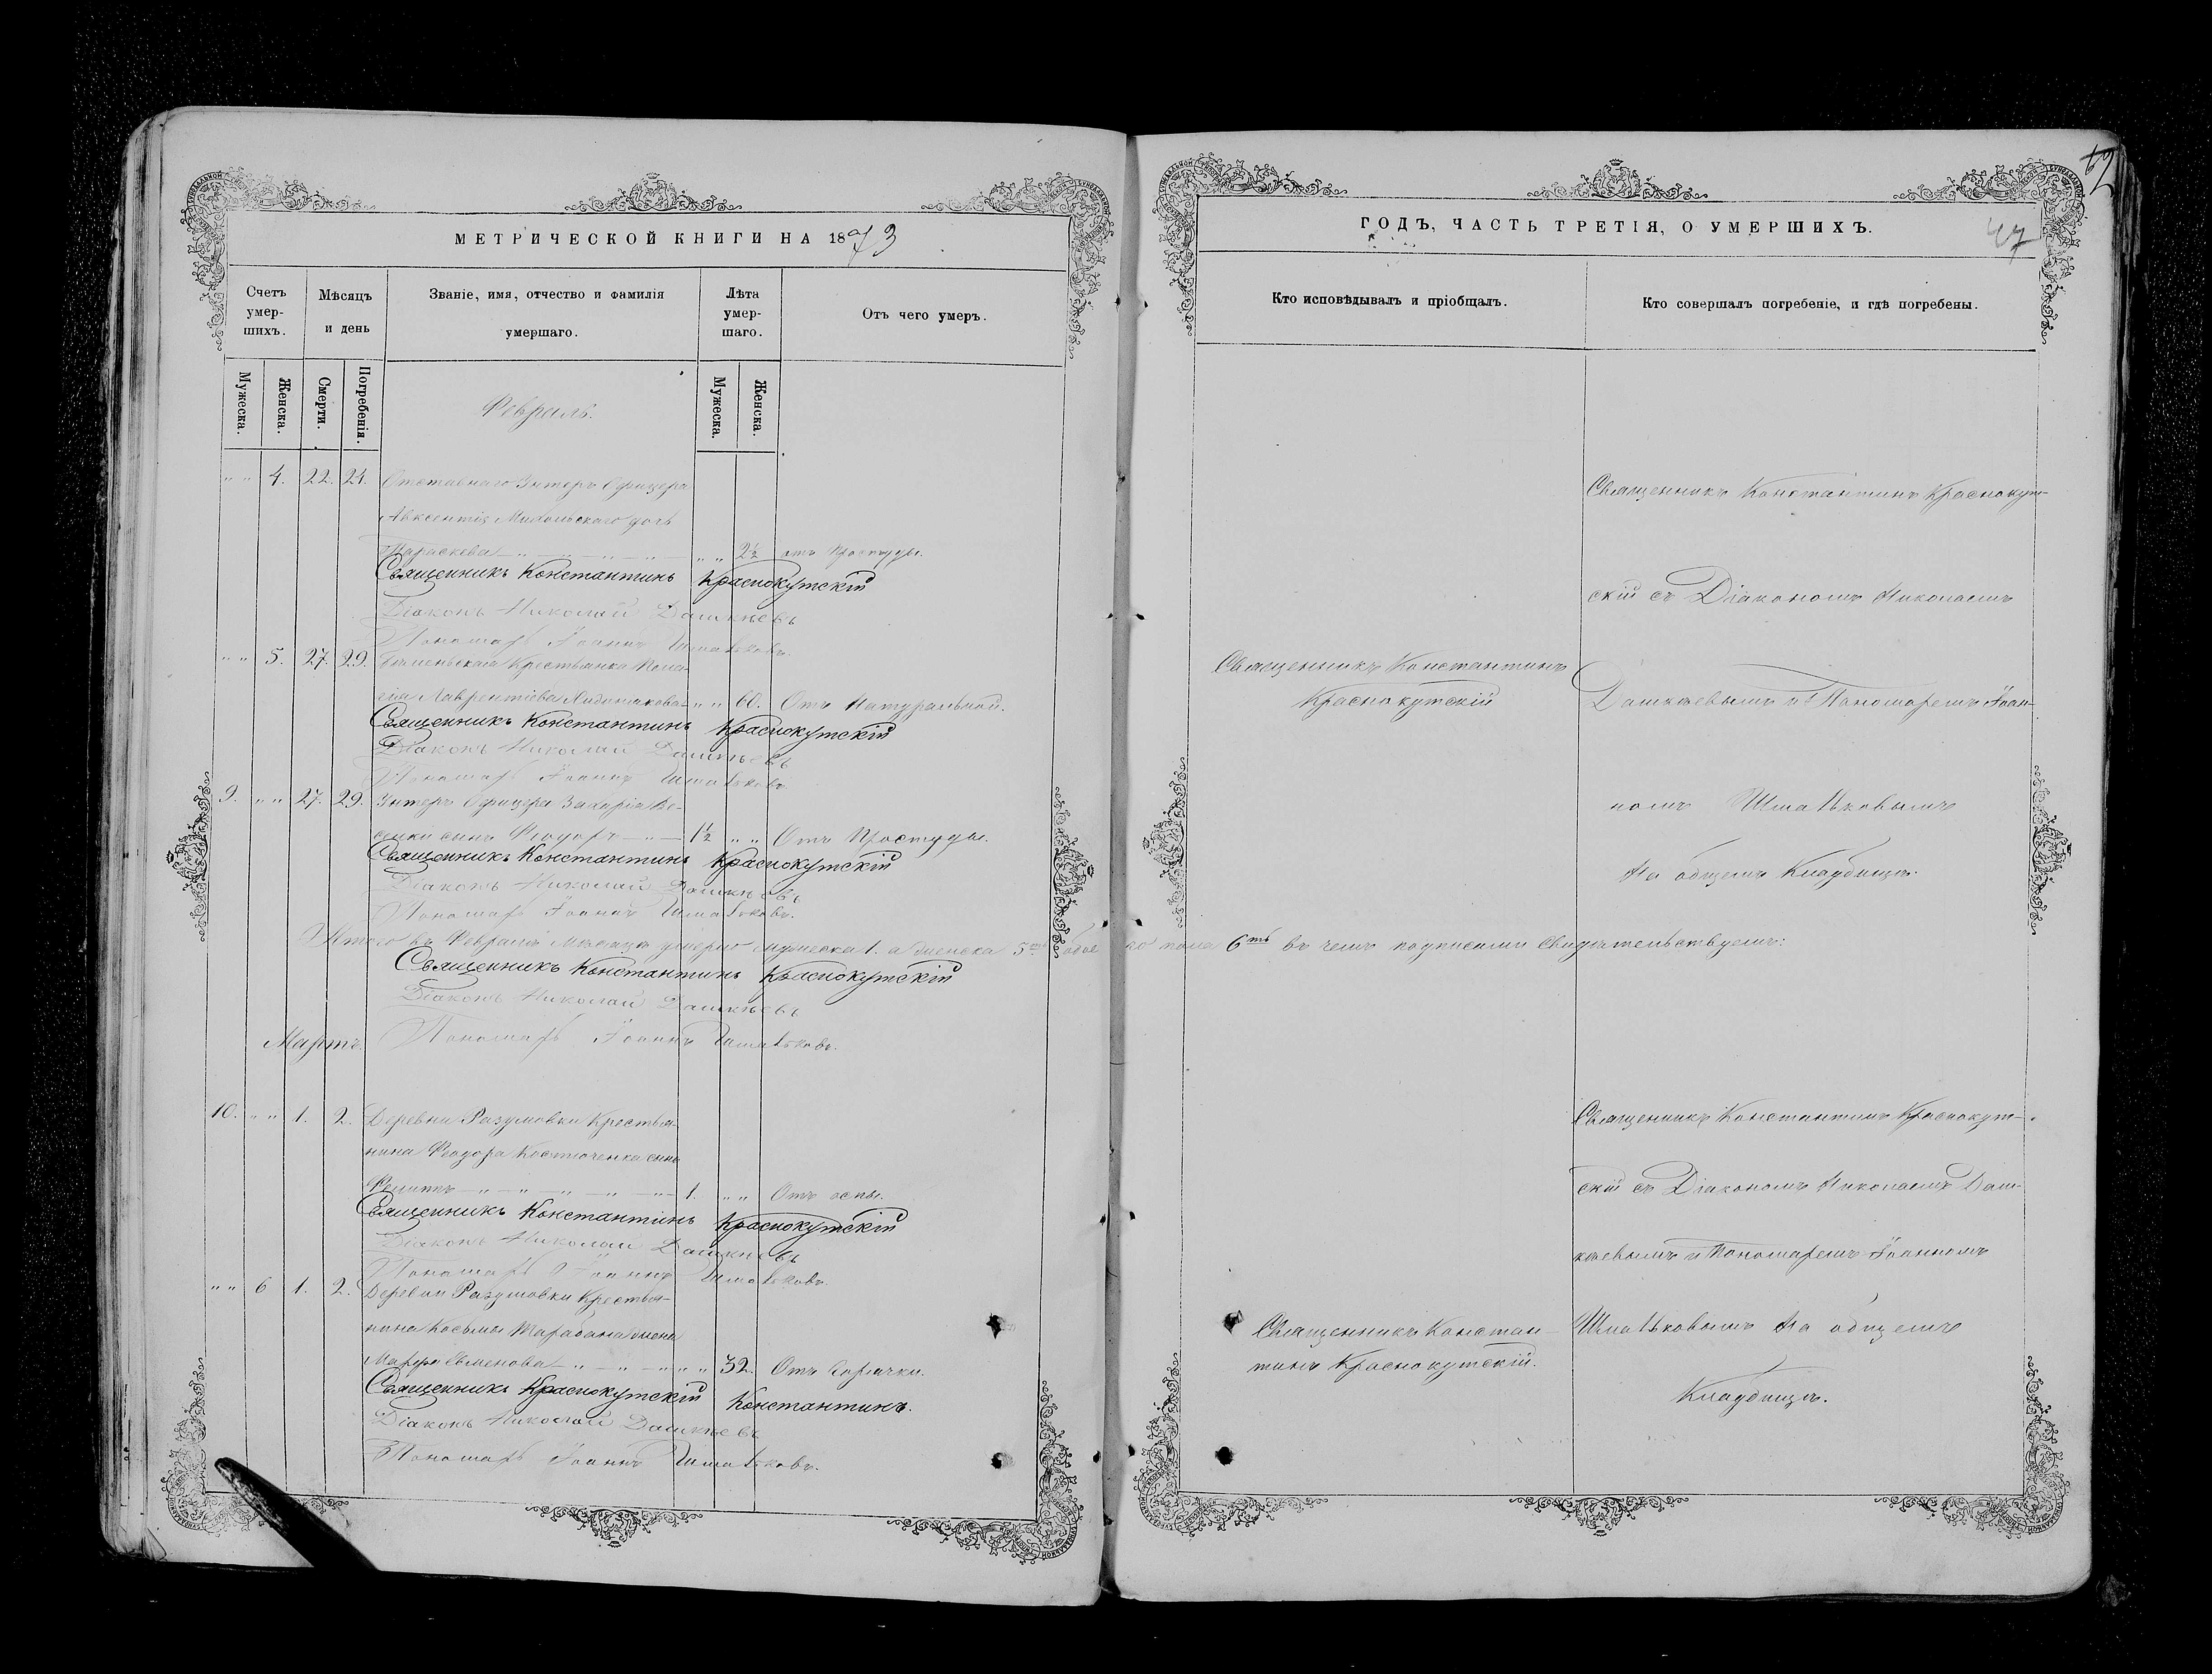 МЕТРИЧЕСКОЙ КНИГИ НА 1873
Счетъ умер-шихъ.
Мѣсяцъ и день
Званіе, имя, отчество и фамилія умершаго.
Лѣта умер-шаго.
Отъ чего умеръ.
Мужеска.
Женска.
Смерти.
Погребенія.
Мужеска.
Женска.
Февраль.
" " 4. 22. 24. Отставнаго Унтеръ Офицера
Авксентія дочь
Параскева 2½ отъ Простуды.
Священникъ Константинъ Краснокутскій
Діаконъ Николай Дашкѣевъ
Пономарь Іоаннъ
" " 5. 27. 29. Крестьянка Пела-
гія Лаврентіева " " 60. Отъ Натуральной.
Священникъ Константинъ Краснокутскій
Діаконъ Николай Дашкѣевъ
Пономарь Іоаннъ
9. " " 27. 29. Унтеръ Офицера Захарія Ве-
сынъ Ѳеодоръ 1½ " " Отъ Простуды.
Священникъ Константинъ Краснокутскій
Діаконъ Николай Дашкѣевъ
Пономарь Іоаннъ
Итого въ Февралѣ Мѣсяцѣ умерло мужеска 1. а женска 5 обое
Священникъ Константинъ Краснокутскій
Діаконъ Николай Дашкѣевъ
Мартъ. Пономарь Іоаннъ
10. " " 1. 2. Деревни Разумовки Крестья-
нина Ѳеодора Костюченка сынъ
1. " " Отъ оспы.
Священникъ Константинъ Краснокутскій
Діаконъ Николай Дашкѣевъ
Пономарь Іоаннъ
" " 6 1. 2. Деревни Разумовки Крестья-
нина Косьмы Тарабана жена
Марфа " " 32. Отъ Горячки.
Священникъ Краснокутскій Константинъ.
Діаконъ Николай Дашкѣевъ
Пономарь Іоаннъ
62
47
ГОДЪ, ЧАСТЬ ТРЕТІЯ, О УМЕРШИХЪ.
Кто исповѣдывалъ и пріобщалъ.
Кто совершалъ погребеніе, и гдѣ погребены.
Священникъ Константинъ Краснокут-
скій съ Діакономъ Николаемъ
Священникъ Константинъ
Краснокутскій
Дашкѣевымъ и Пономаремъ Іоан-
номъ
На общемъ Кладбищѣ.
го пола 6ть въ чемъ подписями свидѣтельствуемъ:
Священникъ Константинъ Краснокут-
скій съ Діакономъ Николаемъ Даш-
кѣевымъ и Пономаремъ Іоанномъ
Священникъ Констан-
тинъ Краснокутскій.
На общемъ
Кладбищѣ.